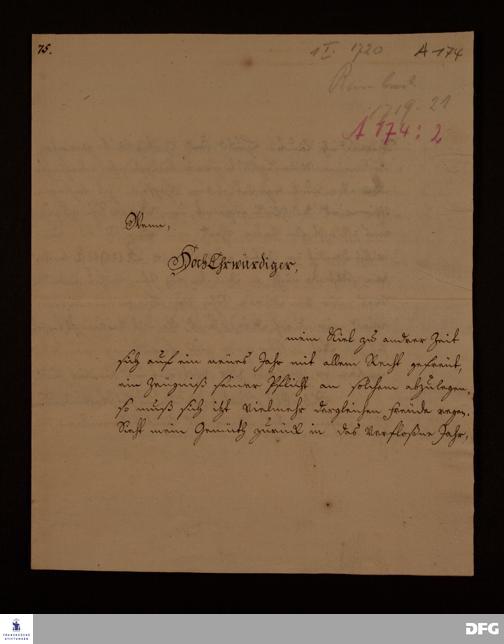 75.
1 I. 1720
A 174
Rambach
1719-21
A 174:2
Wenn,
HochEhrwürdiger,
mein Kiel zu andrer Zeit
sich auf ein neues Jahr mit allem Recht gefreut,
ein Zeugniß seiner Pflicht an solchem abzulegen,
so muß sich itzt vielmehr dergleichen Freude regen.
Sieht mein Gemüth zurück in das verfloßne Jahr,
FRANCKESCHE STIFTUNGEN
DFG